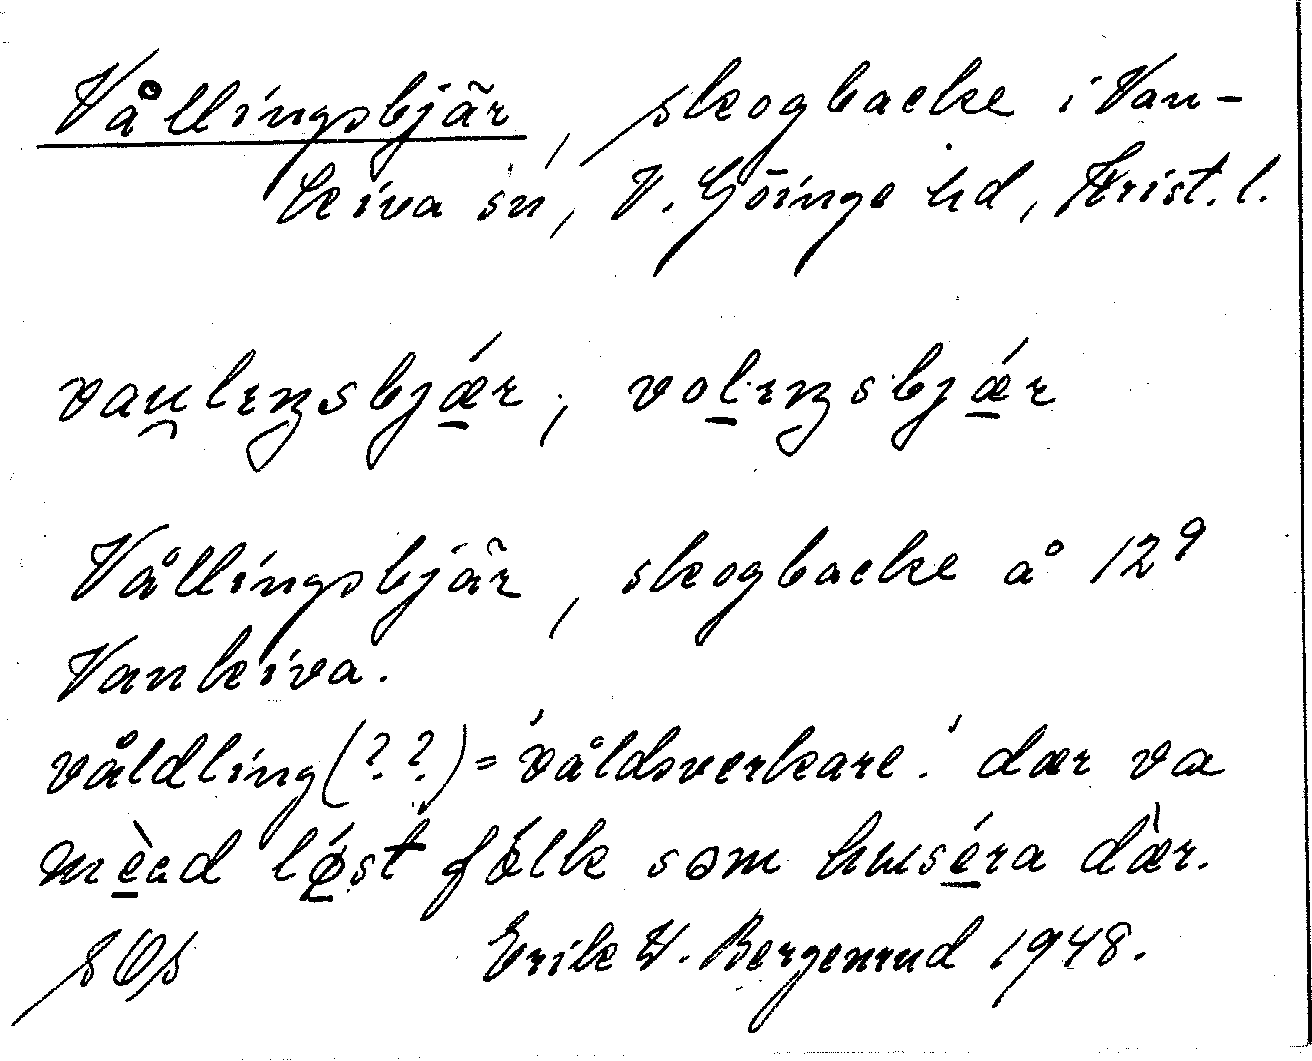 Vållingsbjär, skogbacke i Van-
kiva sn, V. Göinge hd, Krist. l.
vau̯lıŋsbjǽ̱r, voḻıŋsbjǽ̱r
Vållingsbjär, skogbacke å 12⁹
Vankiva.
våldling(??)='våldsverkare'. dær va
mè̱ad lǿ̱st fólk som husé̱ra dæ̀r.
Erik W. Bergenrud 1948.